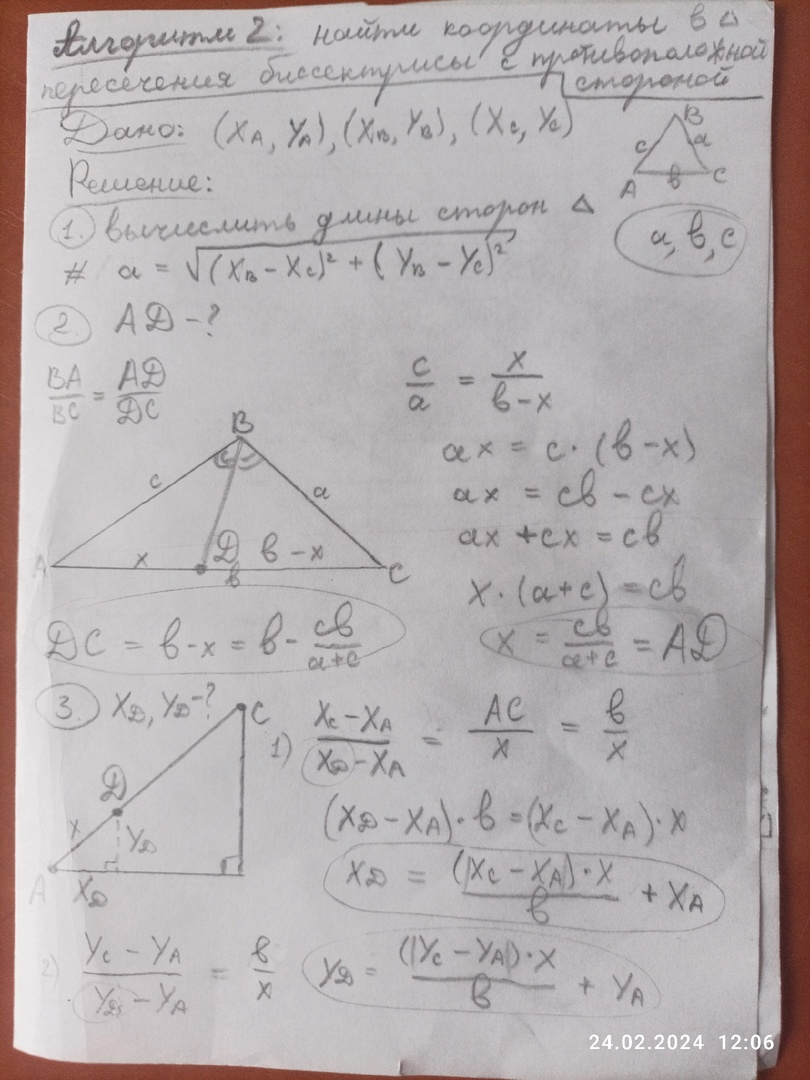 Алгоритм 2: найти координаты в △
пересечения биссектрисы с противоположной
стороной
Дано: (XA, YA), (XB, YB), (XC, YC)
B
c a
A в C
Решение:
1. вычислить длины сторон △
a, в, c
# a = √(XB - XC)² + (YB - YC)²
2. AD - ?
BA/BC = AD/DC
c/a = x/(в-x)
ax = c · (в-x)
ax = cв - cx
ax + cx = cв
x · (a+c) = cв
x = cв/(a+c) = AD
B
c a
A x D в - x C
в
DC = в-x = в - cв/(a+c)
3. XD, YD - ?
C
D
x YD
A XD
1) (XC - XA)/(XD - XA) = AC/x = в/x
(XD - XA) · в = (XC - XA) · x
XD = (|XC - XA|) · x/в + XA
2) (YC - YA)/(YD - YA) = в/x
YD = (|YC - YA|) · x/в + YA
24.02.2024 12:06